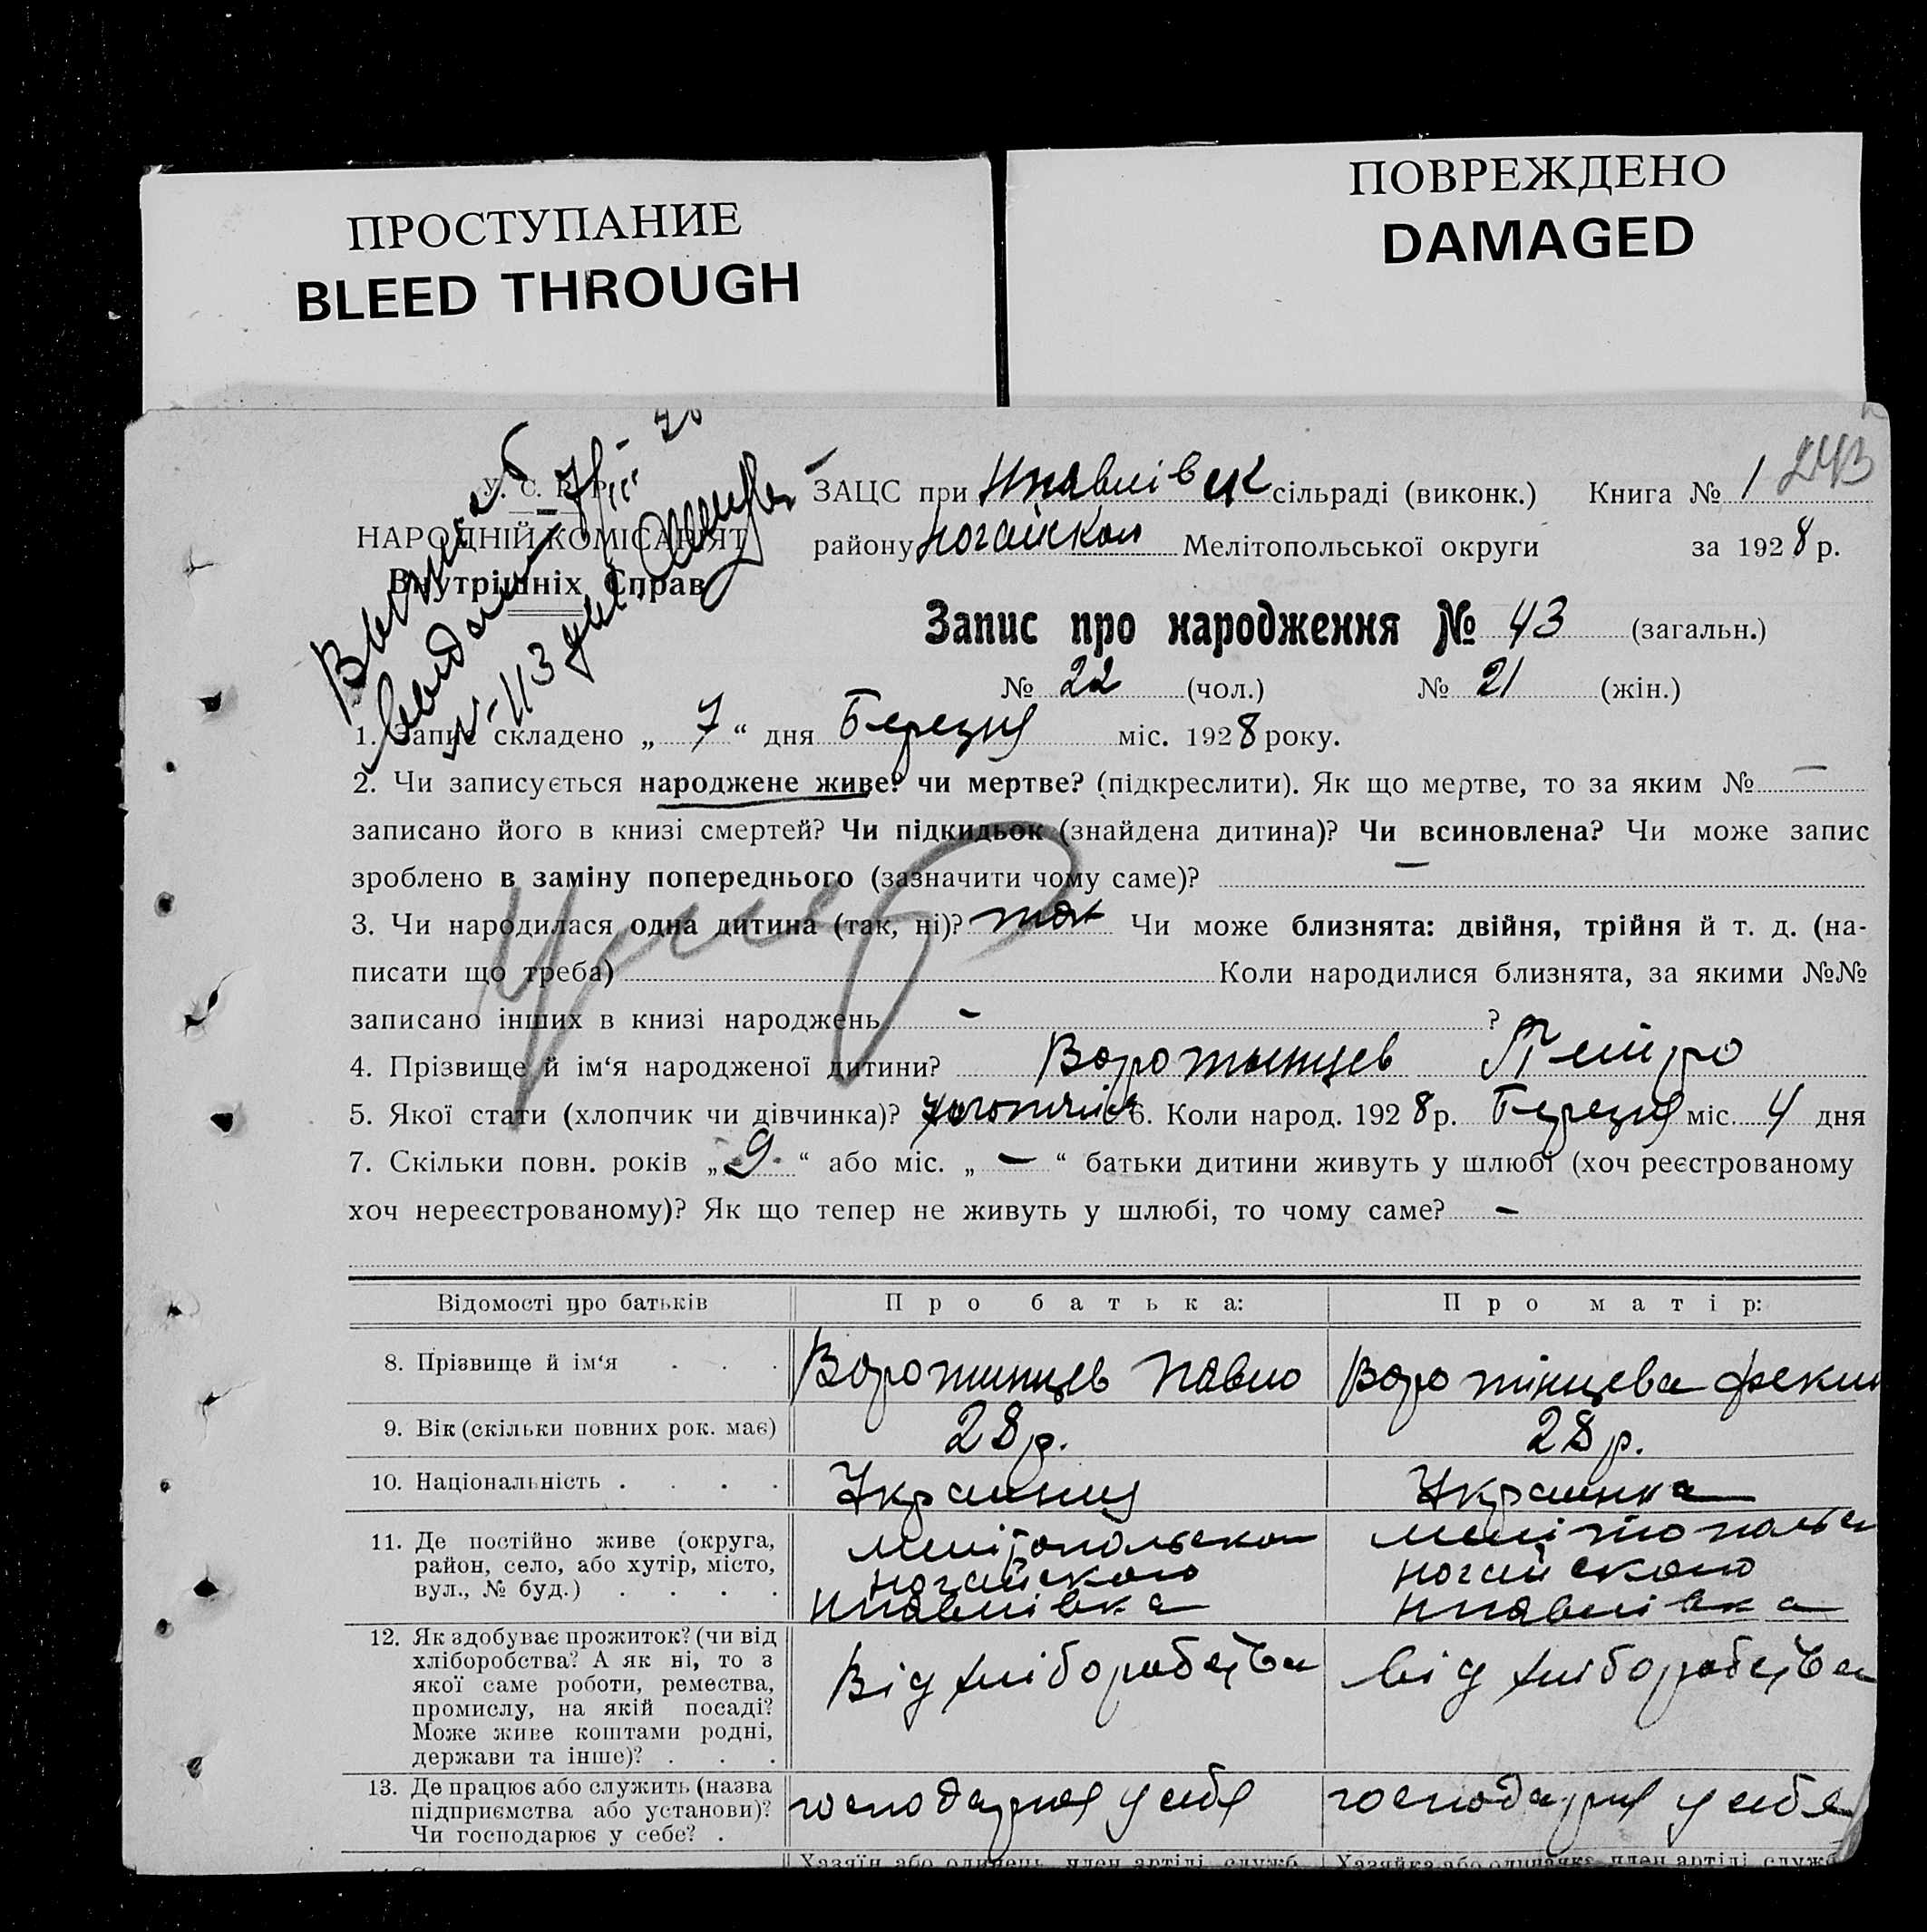 ПРОСТУПАНИЕ
BLEED THROUGH
ПОВРЕЖДЕНО
DAMAGED
243
У. С. Р. Р.
НАРОДНІЙ КОМІСАРІЯТ
Внутрішніх Справ
ЗАЦС при Нпавлівцк сільраді (виконк.) Книга № 1
району Ногайском Мелітопольської округи за 1928 р.
Запис про народження № 43 (загальн.)
№ 22 (чол.) № 21 (жін.)
1. Запис складено „ 7 “ дня Березня міс. 1928 року.
2. Чи записується народжене живе? чи мертве? (підкреслити). Як що мертве, то за яким № —
записано його в книзі смертей? Чи підкидьок (знайдена дитина)? Чи всиновлена? Чи може запис
зроблено в заміну попереднього (зазначити чому саме)? —
3. Чи народилася одна дитина (так, ні)? так Чи може близнята: двійня, трійня й т. д. (на-
писати що треба) Коли народилися близнята, за якими №№
записано інших в книзі народжень - ?
4. Прізвище й ім‘я народженої дитини? Воротынцев Петро
5. Якої стати (хлопчик чи дівчинка)? хлопчик 6. Коли народ. 1928 р. Березня міс. 4 дня
7. Скільки повн. років „ 9 “ або міс. „ — “ батьки дитини живуть у шлюбі (хоч реєстрованому
хоч нереєстрованому)? Як що тепер не живуть у шлюбі, то чому саме? -
Відомості про батьків Про батька: Про матір:
8. Прізвище й ім‘я Воротинцев Павло Воротінцева Фекли
9. Вік (скільки повних рок. має) 28 р. 28 р.
10. Національність Украинец Украинка
11. Де постійно живе (округа, район, село, або хутір, місто, вул., № буд.)
Мелітопольском Ногайского Нпавлівка
Мелітопольс Ногайского Нпавлівка
12. Як здобуває прожиток? (чи від хліборобства? А як ні, то з якої саме роботи, ремества, промислу, на якій посаді? Може живе коштами родні, держави та інше)?
Від хліборобства від хліборобства
13. Де працює або служить (назва підприємства або установи)? Чи господарює у себе?
господарює у себя господарює у себя
Хазяїн або одинець, член артілі, служб. Хазяйка або одиначка, член артілі, служб